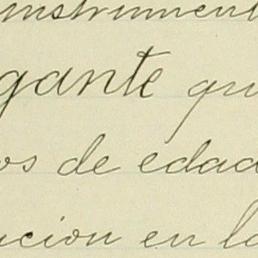 instrument
gante qu
os de edad
ucion en la